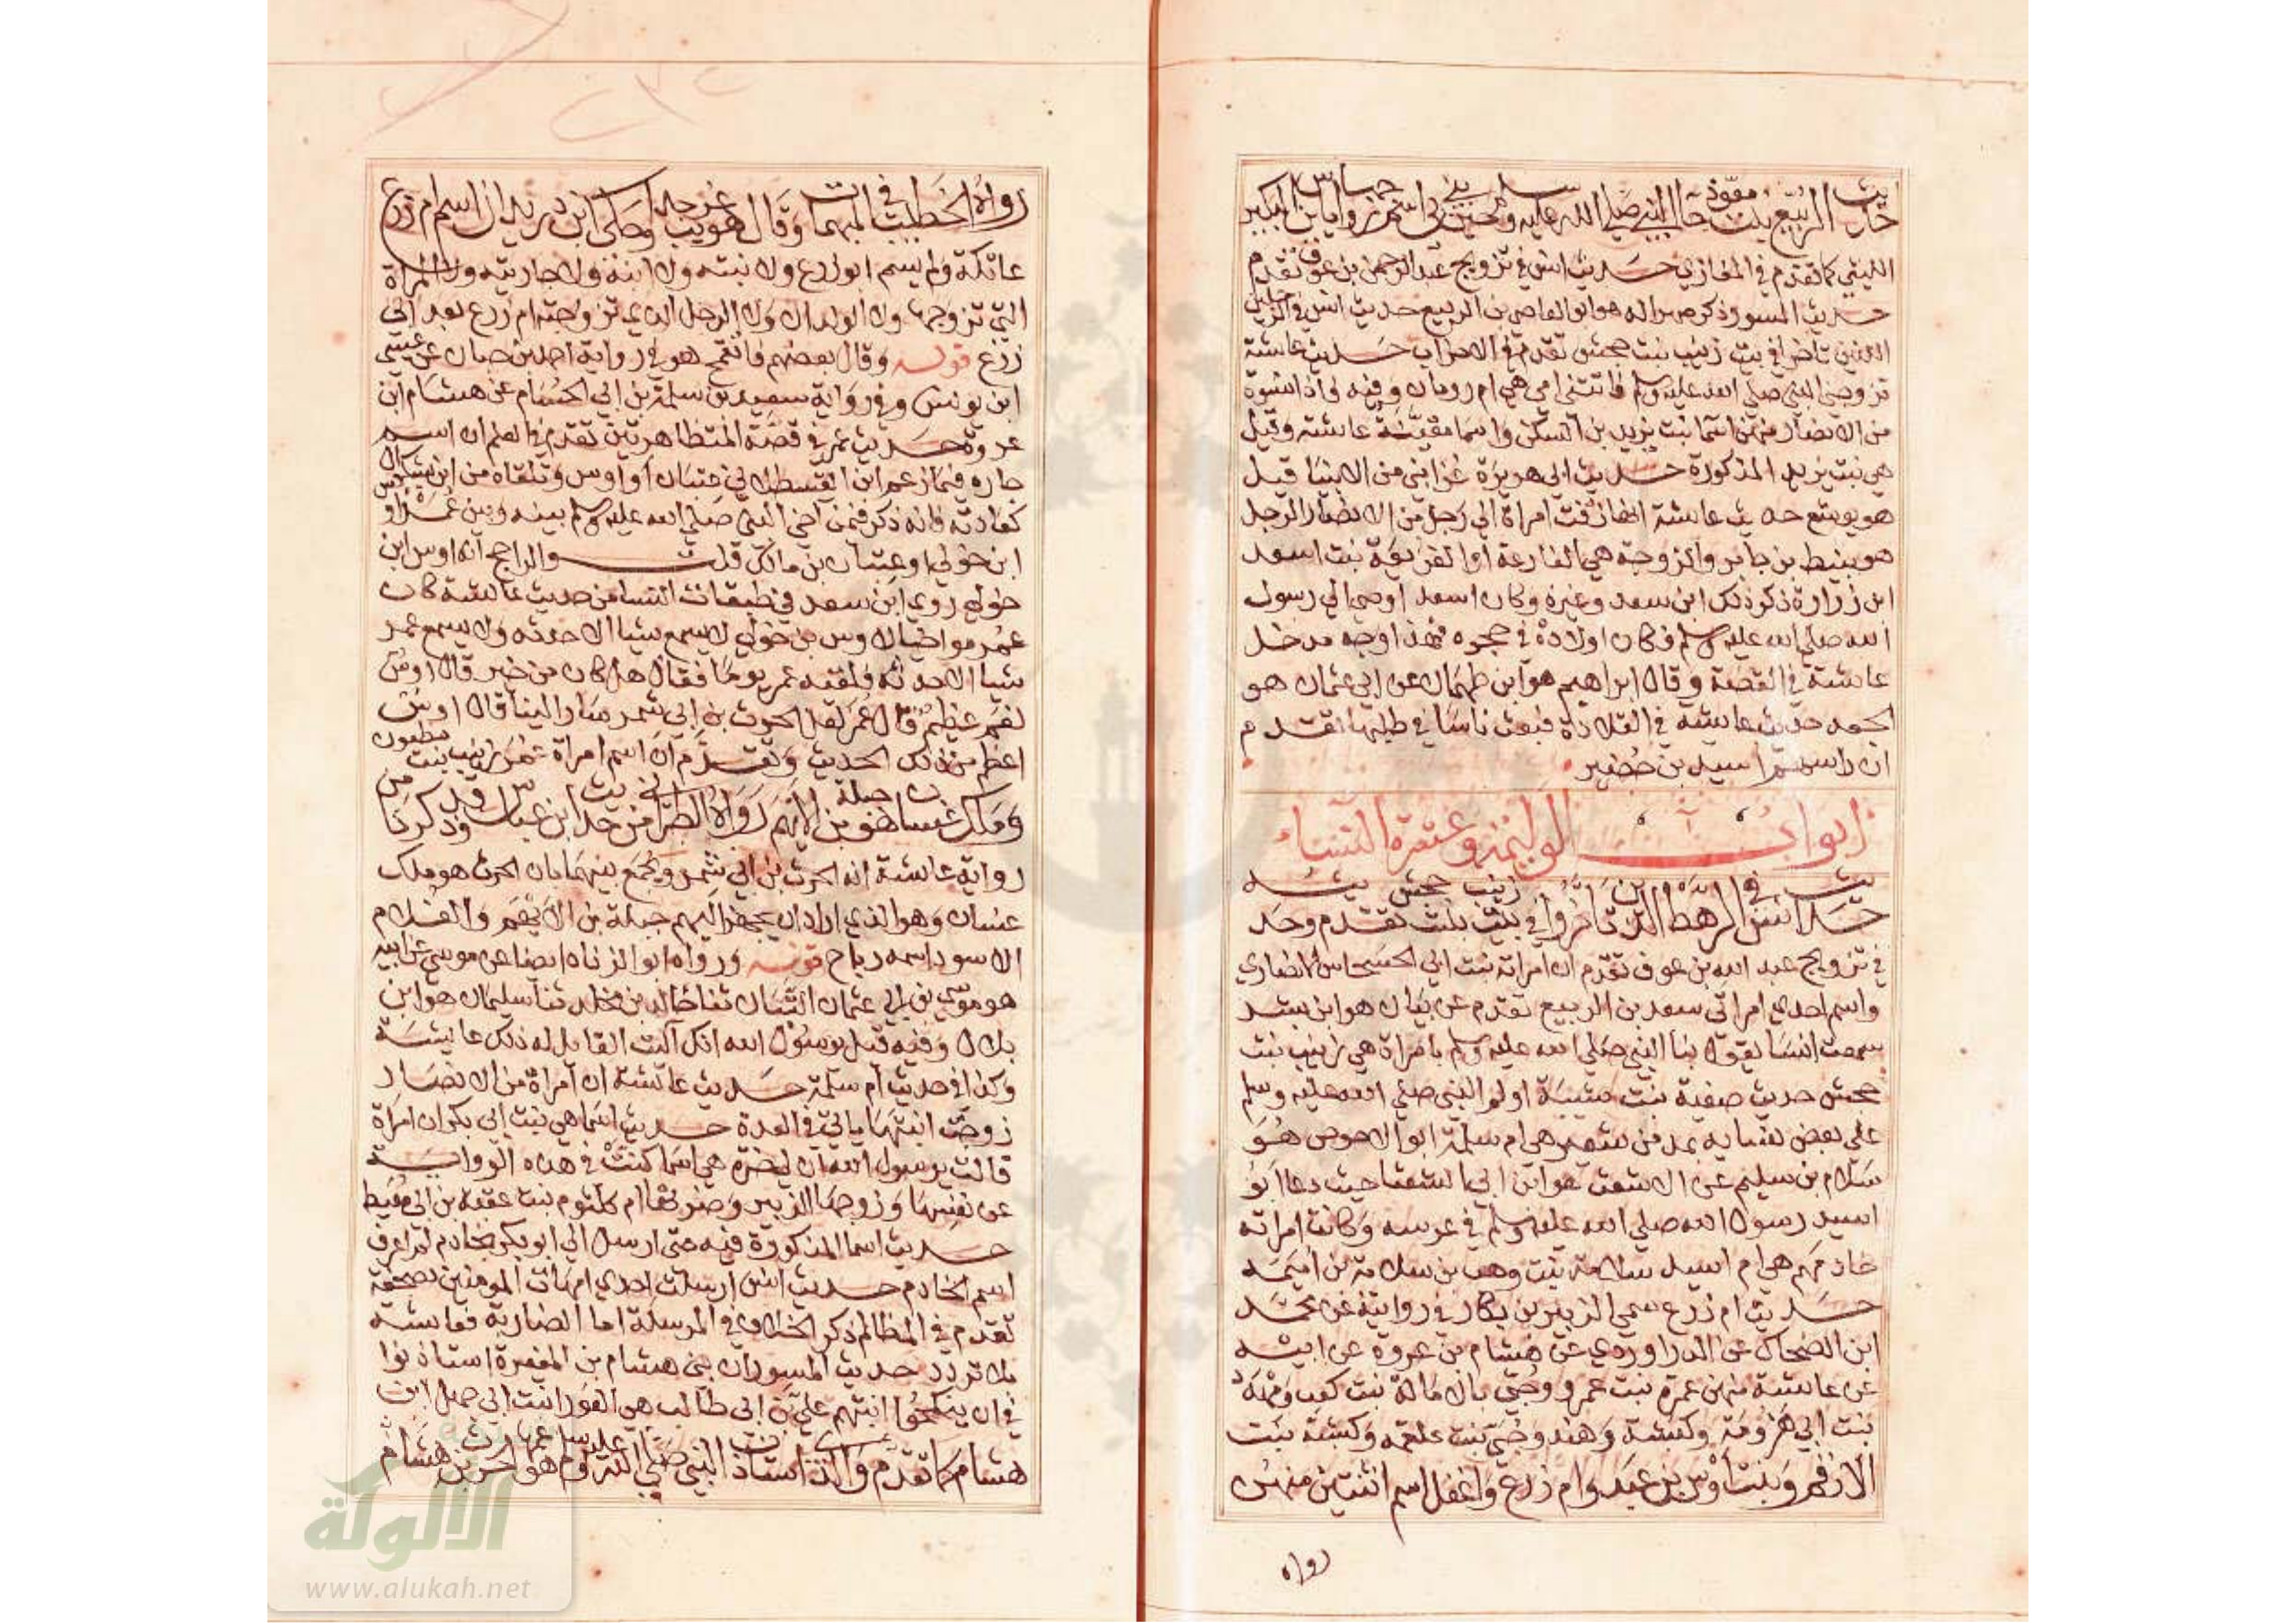 حديث الربيع بنت معوذ جا النبي صلى الله عليه وسلم حين بني علي
الليثي كما تقدم في المغازي حديث انس في تزويج عبد الرحمن بن عوف تقدم
حديث المسور وذكر صهرا له هو ابو العاصي بن الربيع حديث انس في الرجلين
الذين تاخرا في بيت زينب بنت جحش تقدم في الاحزاب حديث عايشة
تزوجني النبي صلى الله عليه وسلم فاتتني امي هي ام رومان وفيه فاذا نسوة
من الانصار منهن اسما بنت يزيد بن السكن واسما مقينة عايشة وقيل
هي بنت يزيد المذكورة حديث ابي هريرة غزا نبي من الانبيا قيل
هو يوشع حديث عايشة انها زفت امراة الي رجل من الانصار الرجل
هو نبيط بن جابر والزوجة هي الفارعة او الفريعة بنت اسعد
ابن زرارة ذكر ذلك ابن سعد وغيره وكان اسعد اوصي الي رسول
الله صلي الله عليه وسلم فكان اولاده في حجره فهذا وجه مدخل
عايشة في القصة وقال ابراهيم هو ابن طهمان عن ابي عثمان هو
الجعد حديث عايشة في القلادة فبعث ناسا في طلبها تقدم
ان راسهم اسيد بن حضير
ابواب الوليمة وعشرة النساء
حديث انس في الرهط الذين تاخروا في بيت زينب بنت جحش تقدم وحديثه
في تزويج عبد الله بن عوف تقدم ان امراته بنت ابي الحسحاس الانصاري
واسم احدي امراتي سعد بن الربيع تقدم عن بيان هو ابن بشر
سمعت انسا يقول بنا النبي صلي الله عليه وسلم بامراة هي زينب بنت
جحش حديث صفية بنت شيبة اولم النبي صلي الله عليه وسلم
علي بعض نسايه بمد من شعير هي ام سلمة ابو الاحوص هو
سلام بن سليم عن الاشعث هو ابن ابي الشعثا حديث دعا ابو
اسيد رسول الله صلي الله عليه وسلم في عرسه وكانت امراته
خادمهم هي ام اسيد سلامة بنت وهب بن سلامة بن اميمه
حديث ام زرع سمي الزبير بن بكار في روايته عن محمد
ابن الضحاك عن الدراوردي عن هشام بن عروة عن ابيه
عن عايشة منهن عمرة بنت عمرو وحبي بنت كعب ومهدد
بنت ابي هزومة وكبشة وهند وحبي بنت علقمه وكبشة بنت
الارقم وبنت اوس بن عبد وام زرع واغفل اسم اثنتين منهن
رواه
رواه الخطيب في المبهمات وقال هو غريب جدا وحكي ابن دريد ان اسم ام زرع
عاتكة ولم يسم ابو زرع ولا بنته ولا ابنه ولا جاريته ولا المراة
التي تزوجها ولا الولدان ولا الرجل الذي تزوجته ام زرع بعد ابي
زرع قوله وقال بعضهم فاتقمح هو في رواية احمد بن حباب عن عيسي
ابن يونس وفي رواية سعيد بن سلمة بن ابي الحسام عن هشام ابن
عروة حديث عمر في قصة المتظاهرتين تقدم في العلم ان اسم
جاره فيما زعم ابن القسطلاني عتبان او اوس وتلقاه من ابن بشكوال
كعادته فانه ذكر فيمن آخي النبي صلي الله عليه وسلم بينه وبين عمر اوس
ابن خولي او عتبان بن مالك قلت والراجح انه اوس ابن
خولي روي ابن سعد في طبقات النسا من حديث عايشة كان
عمر مواخيا لاوس بن خولي لا يسمع شيا الا حدثه ولا يسمع عمر
شيا الا حدثه فلقيه عمر يوما فقال هل كان من خبر قال اوس
نعم عظيم قال عمر لعل الحرث بن ابي شمر سار الينا قال اوس
اعظم من ذلك الحديث وتقدم ان اسم امراة عمر زينب بنت مظعون
وملك غسان هو جبلة بن الايهم رواه الطبراني من حديث ابن عباس وقد ذكرنا من
رواية عايشة انه الحرث بن ابي شمر ويجمع بينهما بان الحرث هو ملك
غسان وهو الذي اراد ان يجهز اليهم جبلة بن الايهم والغلام
الاسود اسمه رباح قوله ورواه ابو الزناد ايضا عن موسي عن ابيه
هو موسي بن ابي عثمان التبان ثنا خالد بن مخلد ثنا سليمان هو ابن
بلال وفيه قيل يرسول الله انك آليت القايل له ذلك عايشة
وكذا في حديث ام سلمة حديث عايشة ان امراة من الانصار
زوجت ابنتها ياتي في العدة حديث اسما هي بنت ابي بكر ان امراة
قالت يرسول الله ان لي ضرة هي اسما كنت في هذه الرواية
عن نفسها وزوجها الزبير وضرتها ام كلثوم بنت عقبة بن ابي معيط
حديث اسما المذكورة فيه حتي ارسل الي ابو بكر بخادم لم اعرف
اسم الخادم حديث انس ارسلت احدي امهات المومنين بصحفة
تقدم في المظالم ذكر الخلاف في المرسلة اما الضاربة فعايشة
بلا تردد حديث المسور ان بني هشام بن المغيرة استاذنوا
في ان ينكحوا ابنتهم علي بن ابي طالب هي العورا بنت ابي جهل ابن
هشام كما تقدم والذي استاذن النبي صلي الله عليه وسلم هو الحرث بن هشام
الألوكة
www.alukah.net